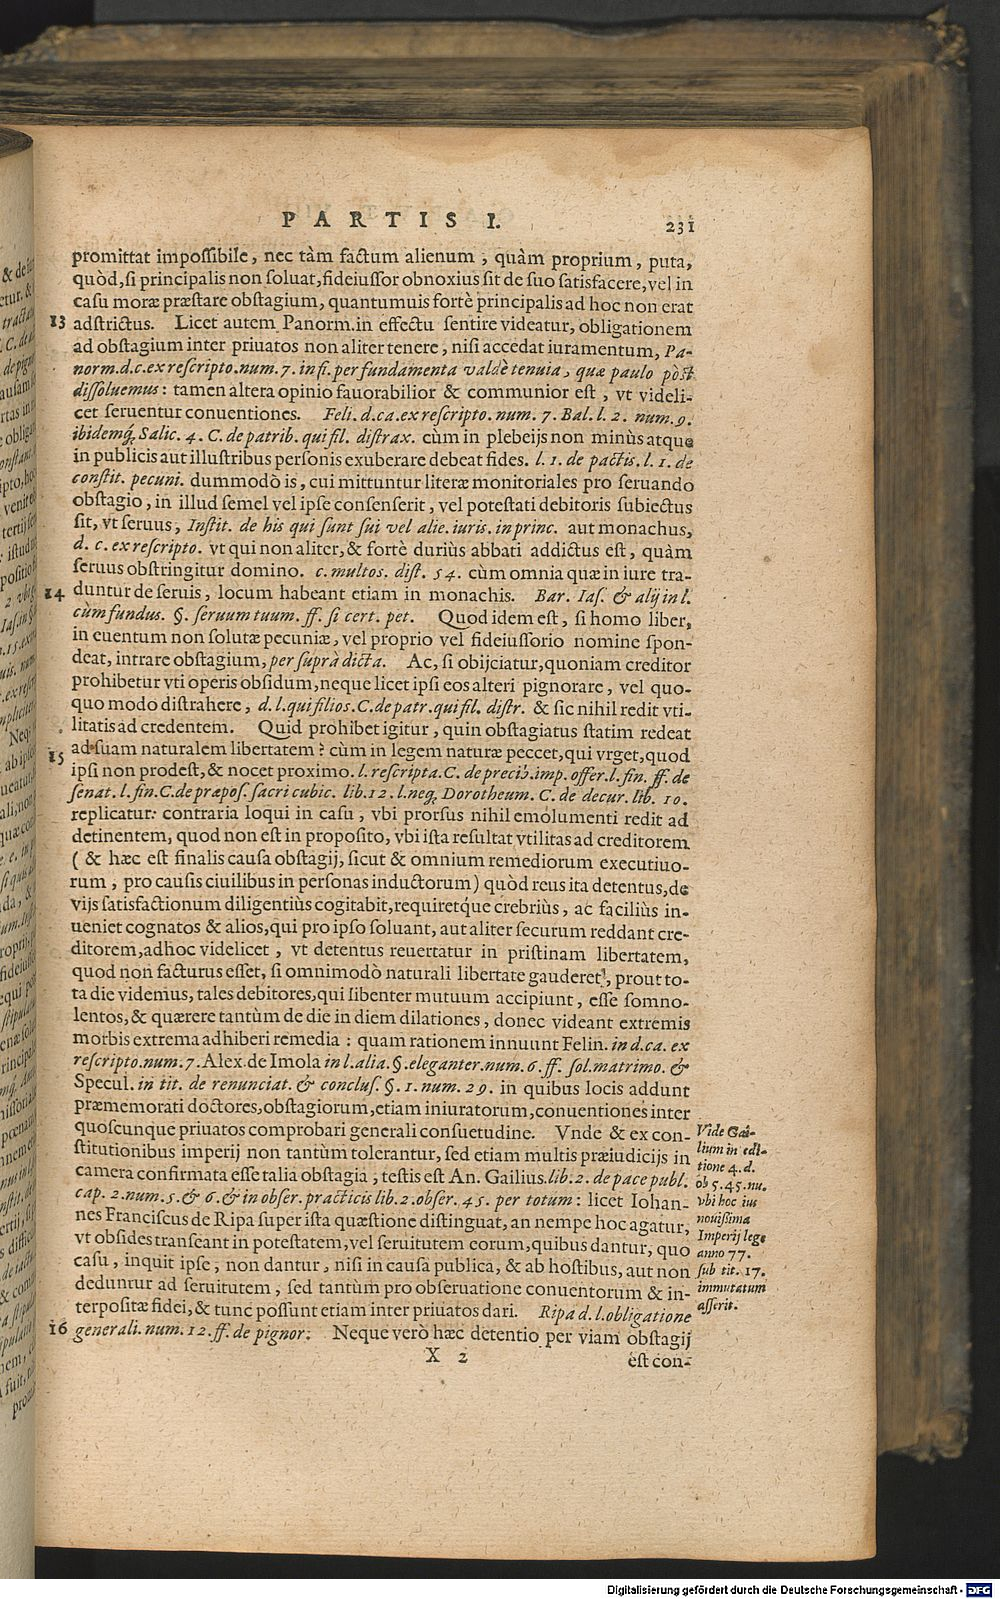 PARTIS I. 231
promittat impossibile, nec tàm factum alienum, quàm proprium, puta,
quòd, si principalis non soluat, fideiussor obnoxius sit de suo satisfacere, vel in
casu moræ præstare obstagium, quantumuis fortè principalis ad hoc non erat
13 adstrictus. Licet autem Panorm. in effectu sentire videatur, obligationem
ad obstagium inter priuatos non aliter tenere, nisi accedat iuramentum, Pa-
norm. d. c. ex rescripto. num. 7. in fi. per fundamenta valdè tenuia, quæ paulo pòst
dissoluemus: tamen altera opinio fauorabilior & communior est, vt videli-
cet seruentur conuentiones. Feli. d. ca. ex rescripto. num. 7. Bal. l. 2. num. 9.
ibidemq́; Salic. 4. C. de patrib. qui fil. distrax. cùm in plebeijs non minùs atque
in publicis aut illustribus personis exuberare debeat fides. l. 1. de pactis. l. 1. de
constit. pecuni. dummodò is, cui mittuntur literæ monitoriales pro seruando
obstagio, in illud semel vel ipse consenserit, vel potestati debitoris subiectus
sit, vt seruus, Instit. de his qui sunt sui vel alie. iuris. in princ. aut monachus,
d. c. ex rescripto. vt qui non aliter, & fortè duriùs abbati addictus est, quàm
seruus obstringitur domino. c. multos. dist. 54. cùm omnia quæ in iure tra-
14 duntur de seruis, locum habeant etiam in monachis. Bar. Ias. & alij in l.
cùm fundus. §. seruum tuum. ff. si cert. pet. Quod idem est, si homo liber,
in euentum non solutæ pecuniæ, vel proprio vel fideiussorio nomine spon-
deat, intrare obstagium, per suprà dicta. Ac, si obijciatur, quoniam creditor
prohibetur vti operis obsidum, neque licet ipsi eos alteri pignorare, vel quo-
quo modo distrahere, d. l. qui filios. C. de patr. qui fil. distr. & sic nihil redit vti-
litatis ad credentem. Quid prohibet igitur, quin obstagiatus statim redeat
ad suam naturalem libertatem? cùm in legem naturæ peccet, qui vrget, quod
15 ipsi non prodest, & nocet proximo. l. rescripta. C. de precib. imp. offer. l. fin. ff. de
senat. l. fin. C. de præpos. sacri cubic. lib. 12. l. neq; Dorotheum. C. de decur. lib. 10.
replicatur: contraria loqui in casu, vbi prorsus nihil emolumenti redit ad
detinentem, quod non est in proposito, vbi ista resultat vtilitas ad creditorem
( & hæc est finalis causa obstagij, sicut & omnium remediorum executiuo-
rum, pro causis ciuilibus in personas inductorum) quòd reus ita detentus, de
vijs satisfactionum diligentiùs cogitabit, requiretq́ue crebriùs, ac faciliùs in-
ueniet cognatos & alios, qui pro ipso soluant, aut aliter securum reddant cre-
ditorem, ad hoc videlicet, vt detentus reuertatur in pristinam libertatem,
quod non facturus esset, si omnimodò naturali libertate gauderet, prout to-
ta die videmus, tales debitores, qui libenter mutuum accipiunt, esse somno-
lentos, & quærere tantùm de die in diem dilationes, donec videant extremis
morbis extrema adhiberi remedia: quam rationem innuunt Felin. in d. ca. ex
rescripto. num. 7. Alex. de Imola in l. alia. §. eleganter. num. 6. ff. sol. matrimo. &
Specul. in tit. de renunciat. & conclus. §. 1. num. 29. in quibus locis addunt
præmemorati doctores, obstagiorum, etiam iniuratorum, conuentiones inter
quoscunque priuatos comprobari generali consuetudine. Vnde & ex con-
stitutionibus imperij non tantùm tolerantur, sed etiam multis præiudicijs in
camera confirmata esse talia obstagia, testis est An. Gailius. lib. 2. de pace publ.
cap. 2. num. 5. & 6. & in obser. practicis lib. 2. obser. 45. per totum: licet Iohan-
nes Franciscus de Ripa super ista quæstione distinguat, an nempe hoc agatur,
vt obsides transeant in potestatem, vel seruitutem eorum, quibus dantur, quo
casu, inquit ipse, non dantur, nisi in causa publica, & ab hostibus, aut non
deduntur ad seruitutem, sed tantùm pro obseruatione conuentorum & in-
terpositæ fidei, & tunc possunt etiam inter priuatos dari. Ripa d. l. obligatione
16 generali. num. 12. ff. de pignor: Neque verò hæc detentio per viam obstagij
X 2 est con-
Vide Gai-
lium in edi-
tione 4. d.
ob 5. 45. nu.
vbi hoc ius
nouissima
Imperij lege
anno 77.
sub tit. 17.
immutatum
asserit.
Digitalisierung gefördert durch die Deutsche Forschungsgemeinschaft - DFG